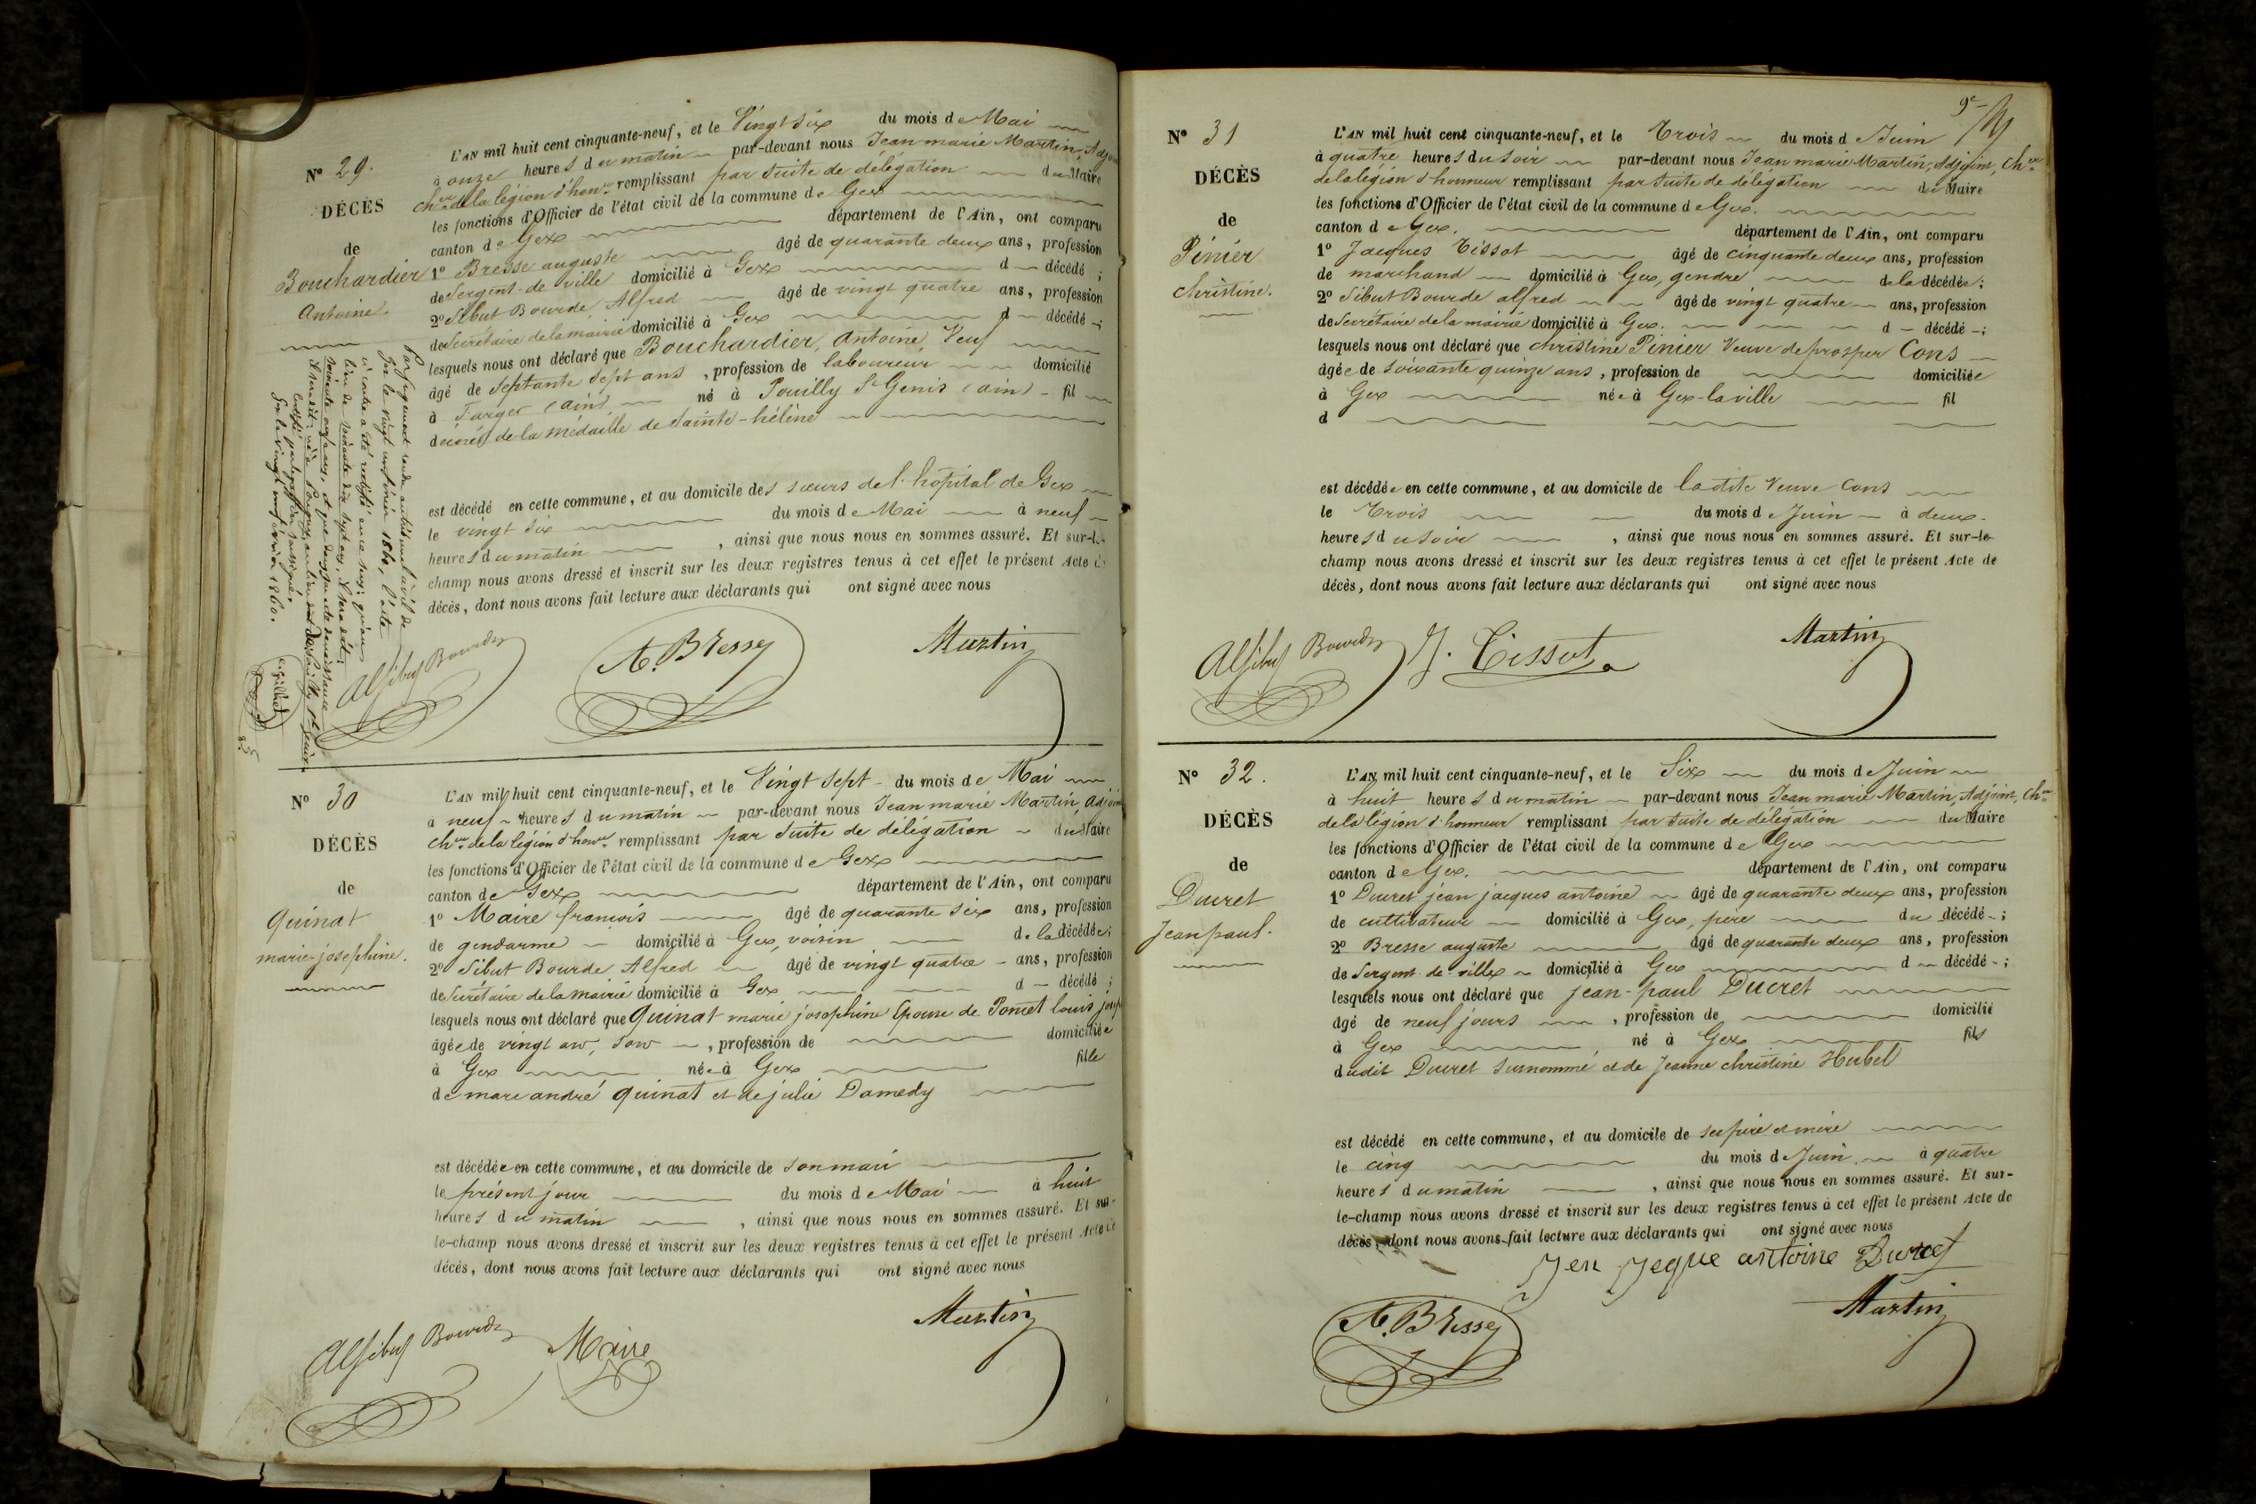 N° 29.
DÉCÈS
de
Bouchardier
Antoine.
L'AN mil huit cent cinquante-neuf, et le Vingt six du mois de Mai
à onze heures du matin par-devant nous Jean marie Martin, Adjoint
chev. de la légion d'honr. remplissant par suite de délégation du Maire
les fonctions d'Officier de l'état civil de la commune de Gex
canton de Gex département de l'Ain, ont comparu
1° Bresse auguste âgé de quarante deux ans, profession
de Sergent-de ville domicilié à Gex d décédé ;
2° Sibut Bourde Alfred âgé de vingt quatre ans, profession
de Secrétaire de la mairie domicilié à Gex d décédé ;
lesquels nous ont déclaré que Bouchardier, Antoine, Veuf
âgé de septante sept ans, profession de laboureur domicilié
à Farges (ain) né à Pouilly St Genis (ain) fil
décoré de la médaille de Sainte-hélène
est décédé en cette commune, et au domicile des sœurs de l'hôpital de Gex
le vingt six du mois de Mai à neuf
heures du matin, ainsi que nous nous en sommes assuré. Et sur-le-
champ nous avons dressé et inscrit sur les deux registres tenus à cet effet le présent Acte de
décès, dont nous avons fait lecture aux déclarants qui ont signé avec nous
Par jugement rendu au tribunal civil de
Gex le vingt un février 1860, l'acte
ci contre a été rectifié en ce sens qu'au
lieu de soixante dix sept ans, il sera dit
soixante onze ans, et que
Gex le vingt neuf février 1860.
Al Sibut Bourde
A. Bressey
Martin
N° 30
DÉCÈS
de
Quinat
marie-josephine.
L'AN mil huit cent cinquante-neuf, et le Vingt sept du mois de Mai
à neuf heures du matin par-devant nous Jean marie Martin, Adjoint
chev. de la légion d'honr. remplissant par suite de délégation du Maire
les fonctions d'Officier de l'état civil de la commune de Gex
canton de Gex département de l'Ain, ont comparu
1° Maire françois âgé de quarante six ans, profession
de gendarme domicilié à Gex, voisin de la décédée ;
2° Sibut Bourde Alfred âgé de vingt quatre ans, profession
de Secrétaire de la mairie domicilié à Gex d décédé ;
lesquels nous ont déclaré que Quinat marie josephine Epouse de Poncet louis josep
âgée de vingt, profession de domiciliée
à Gex née à Gex fille
de marc andré quinat et de julie Damedy
est décédée en cette commune, et au domicile de son mari
le présent jour du mois de Mai à huit
heures du matin, ainsi que nous nous en sommes assuré. Et sur-
le-champ nous avons dressé et inscrit sur les deux registres tenus à cet effet le présent Acte de
décès, dont nous avons fait lecture aux déclarants qui ont signé avec nous
Al Sibut Bourde
Maire
Martin
N° 31
DÉCÈS
de
Pénier
christine.
L'AN mil huit cent cinquante-neuf, et le Trois du mois de Juin
à quatre heures du soir par-devant nous Jean marie Martin, Adjoint, Chev.
de la légion d'honneur remplissant par suite de délégation du Maire
les fonctions d'Officier de l'état civil de la commune de Gex.
canton de Gex. département de l'Ain, ont comparu
1° Jacques Tissot âgé de cinquante deux ans, profession
de marchand domicilié à Gex, gendre de la décédée ;
2° Sibut Bourde alfred âgé de vingt quatre ans, profession
de Secrétaire de la mairie domicilié à Gex. d décédé ;
lesquels nous ont déclaré que christine Pénier Veuve de prosper Cons
âgée de soixante quinze ans, profession de domiciliée
à Gex née à Gex-la ville fil
d
est décédée en cette commune, et au domicile de ladite Veuve Cons
le Trois du mois de Juin à deux
heures du soir, ainsi que nous nous en sommes assuré. Et sur-le-
champ nous avons dressé et inscrit sur les deux registres tenus à cet effet le présent Acte de
décès, dont nous avons fait lecture aux déclarants qui ont signé avec nous
Al Sibut Bourde
J. Tissot
Martin
N° 32.
DÉCÈS
de
Ducret
Jean paul.
L'AN mil huit cent cinquante-neuf, et le Six du mois de Juin
à huit heures du matin par-devant nous Jean marie Martin, Adjoint, Chev.
de la légion d'honneur remplissant par suite de délégation du Maire
les fonctions d'Officier de l'état civil de la commune de Gex
canton de Gex. département de l'Ain, ont comparu
1° Ducret jean jacques antoine âgé de quarante deux ans, profession
de cultivateur domicilié à Gex, père du décédé ;
2° Bresse auguste âgé de quarante deux ans, profession
de Sergent de ville domicilié à Gex d décédé ;
lesquels nous ont déclaré que jean-paul Ducret
âgé de neuf jours, profession de domicilié
à Gex né à Gex fils
dudit Ducret surnommé et de Jeanne christine Hubet
est décédé en cette commune, et au domicile de ses père et mère
le cinq du mois de Juin à quatre
heures du matin, ainsi que nous nous en sommes assuré. Et sur-
le-champ nous avons dressé et inscrit sur les deux registres tenus à cet effet le présent Acte de
décès, dont nous avons fait lecture aux déclarants qui ont signé avec nous
Jen Jeque antoine Ducret
A. Bressey
Martin